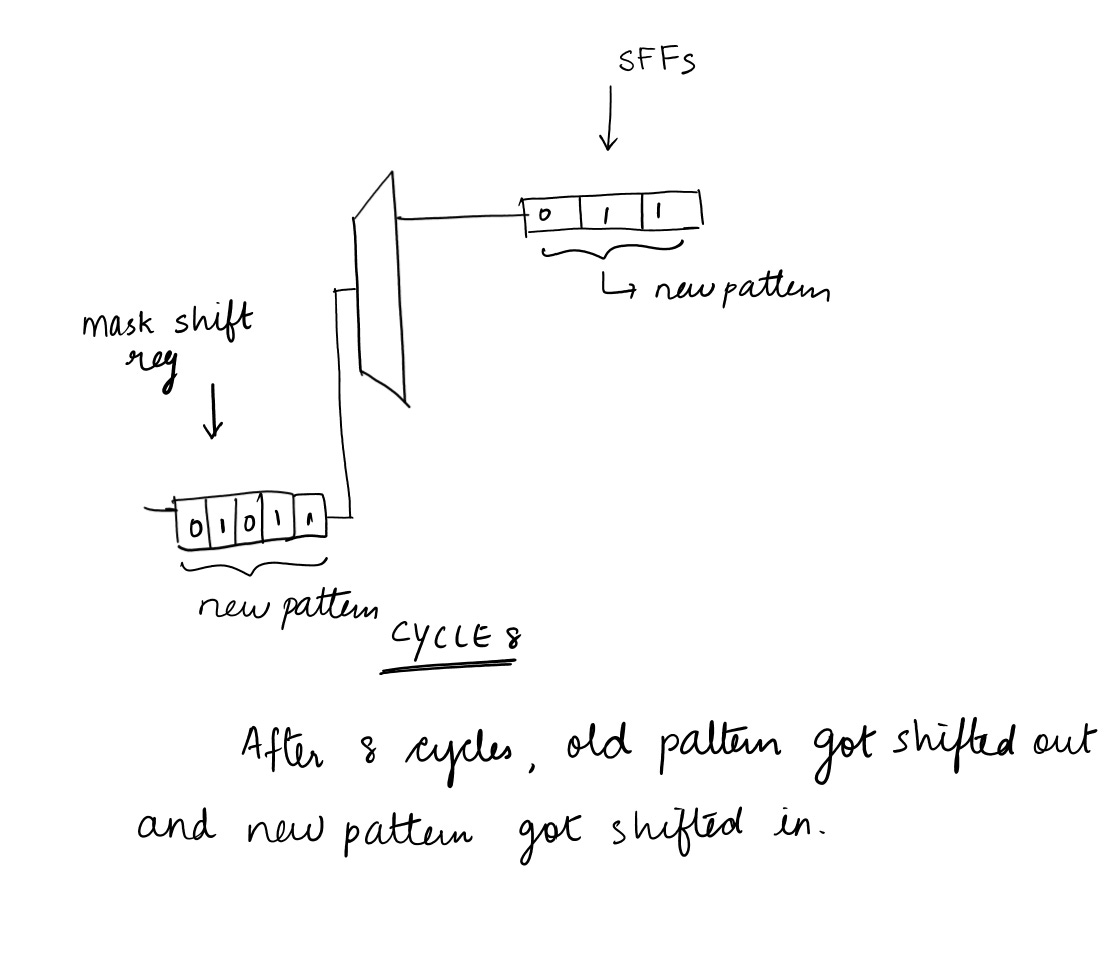 SFFs
0 1 1
new pattern
mask shift
reg
0 1 0 1 1
new pattern
CYCLE 8
After 8 cycles, old pattern got shifted out
and new pattern got shifted in.